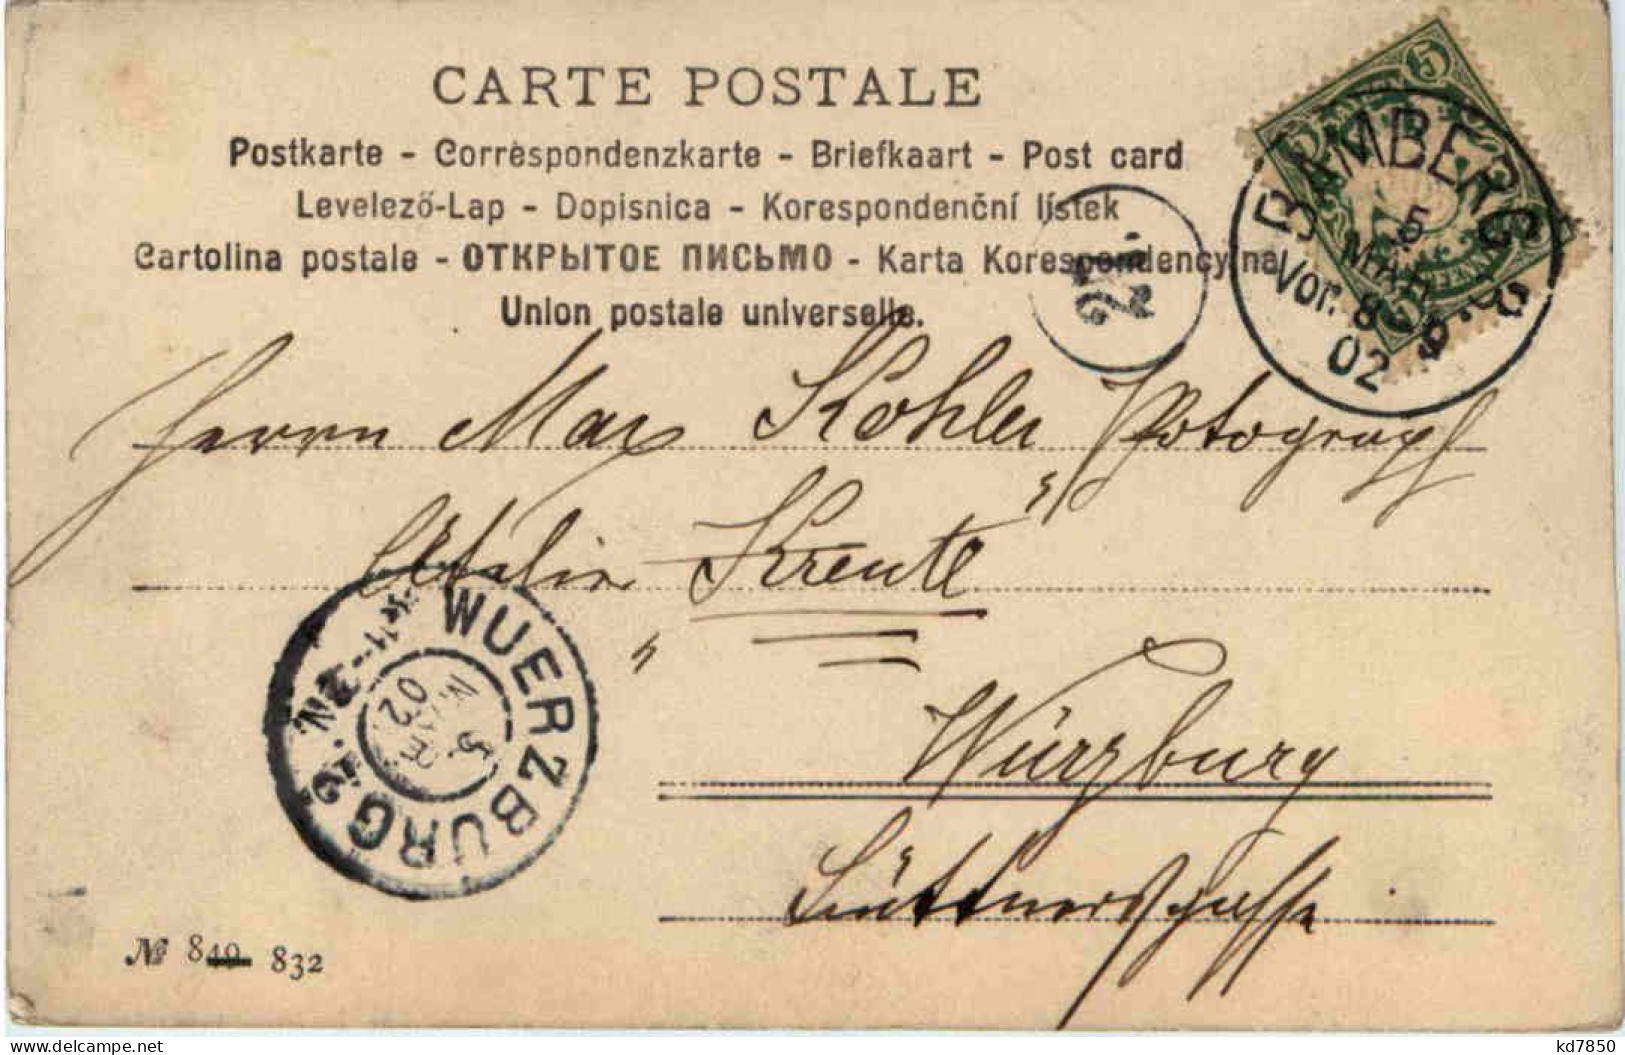 CARTE POSTALE
Postkarte - Correspondenzkarte - Briefkaart - Post card
Levelező-Lap - Dopisnica - Korespondenční lístek
Cartolina postale - ОТКРЫТОЕ ПИСЬМО - Karta Korespondencyjna
Union postale universelle.
5
BAMBERG
5
MAR
Vor. 8-9
02
Herrn Max Köhler, Photograph
Atelier "
Würzburg
WUERZBURG 2.
5.
MAR
02
№ 840 832
kd7850